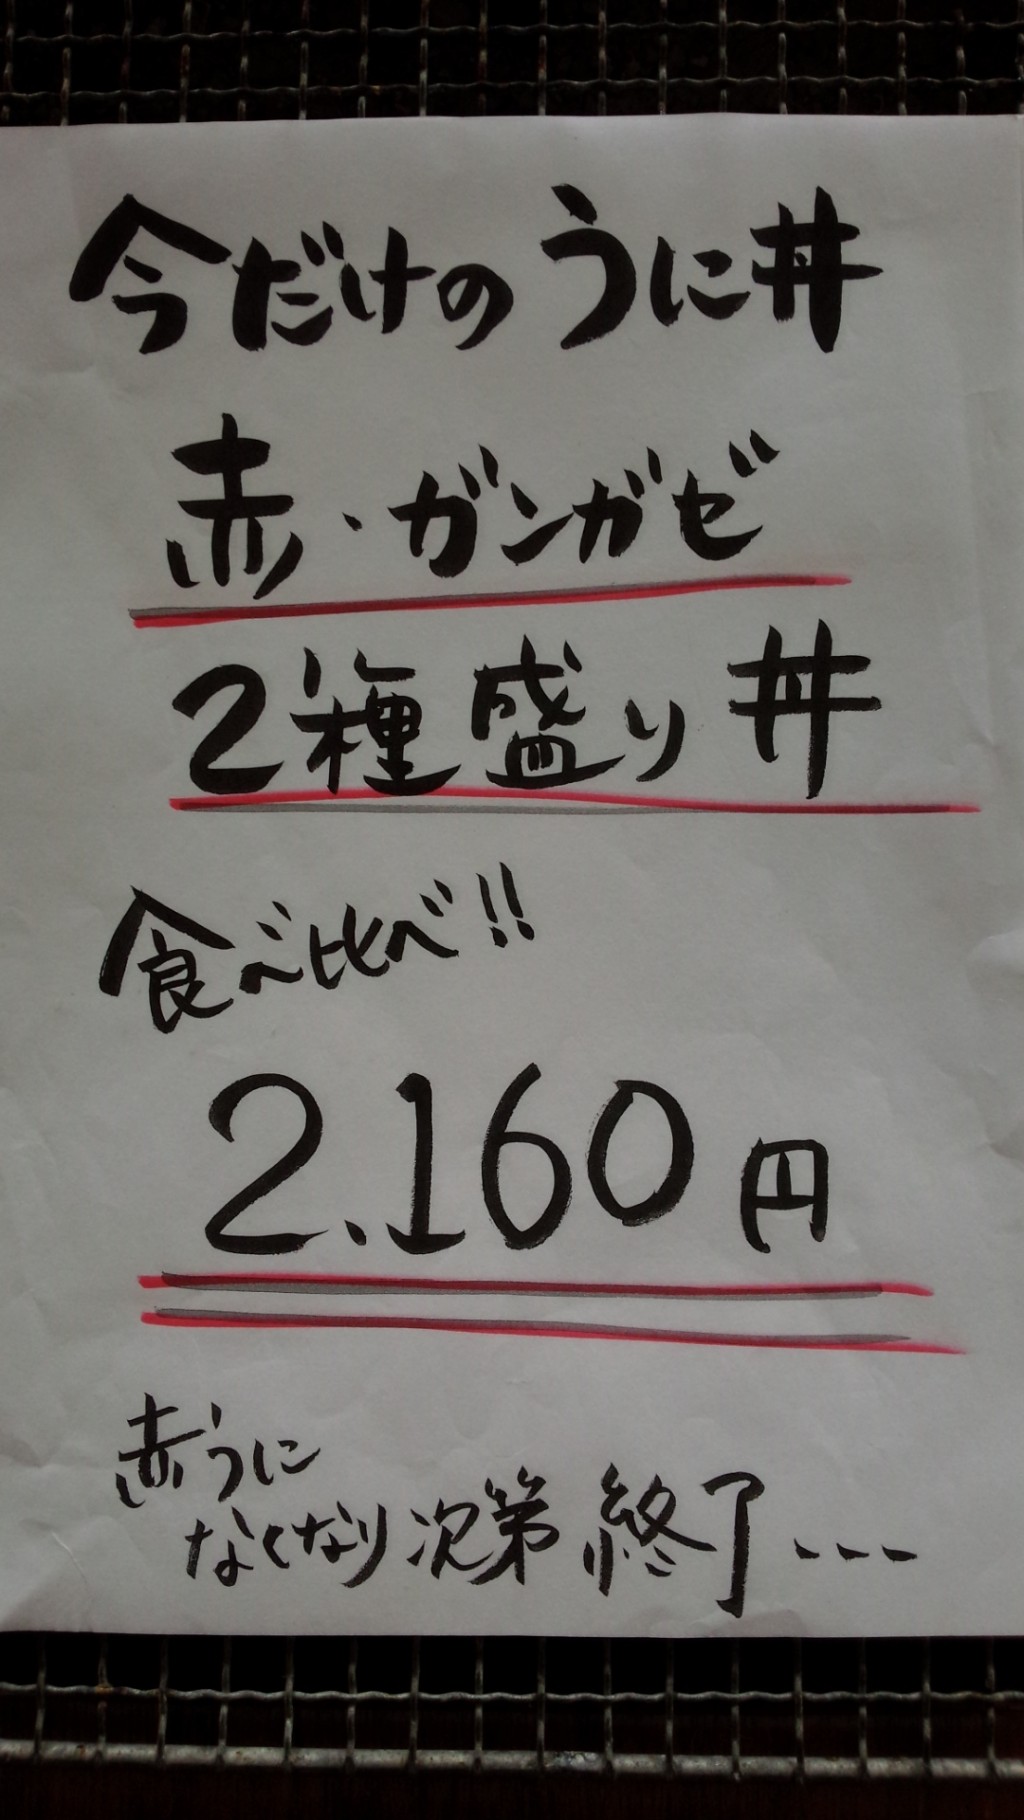 今だけのうに丼
赤・ガンガゼ
2種盛り丼
食べ比べ!!
2.160円
赤うに
なくなり次第終了...